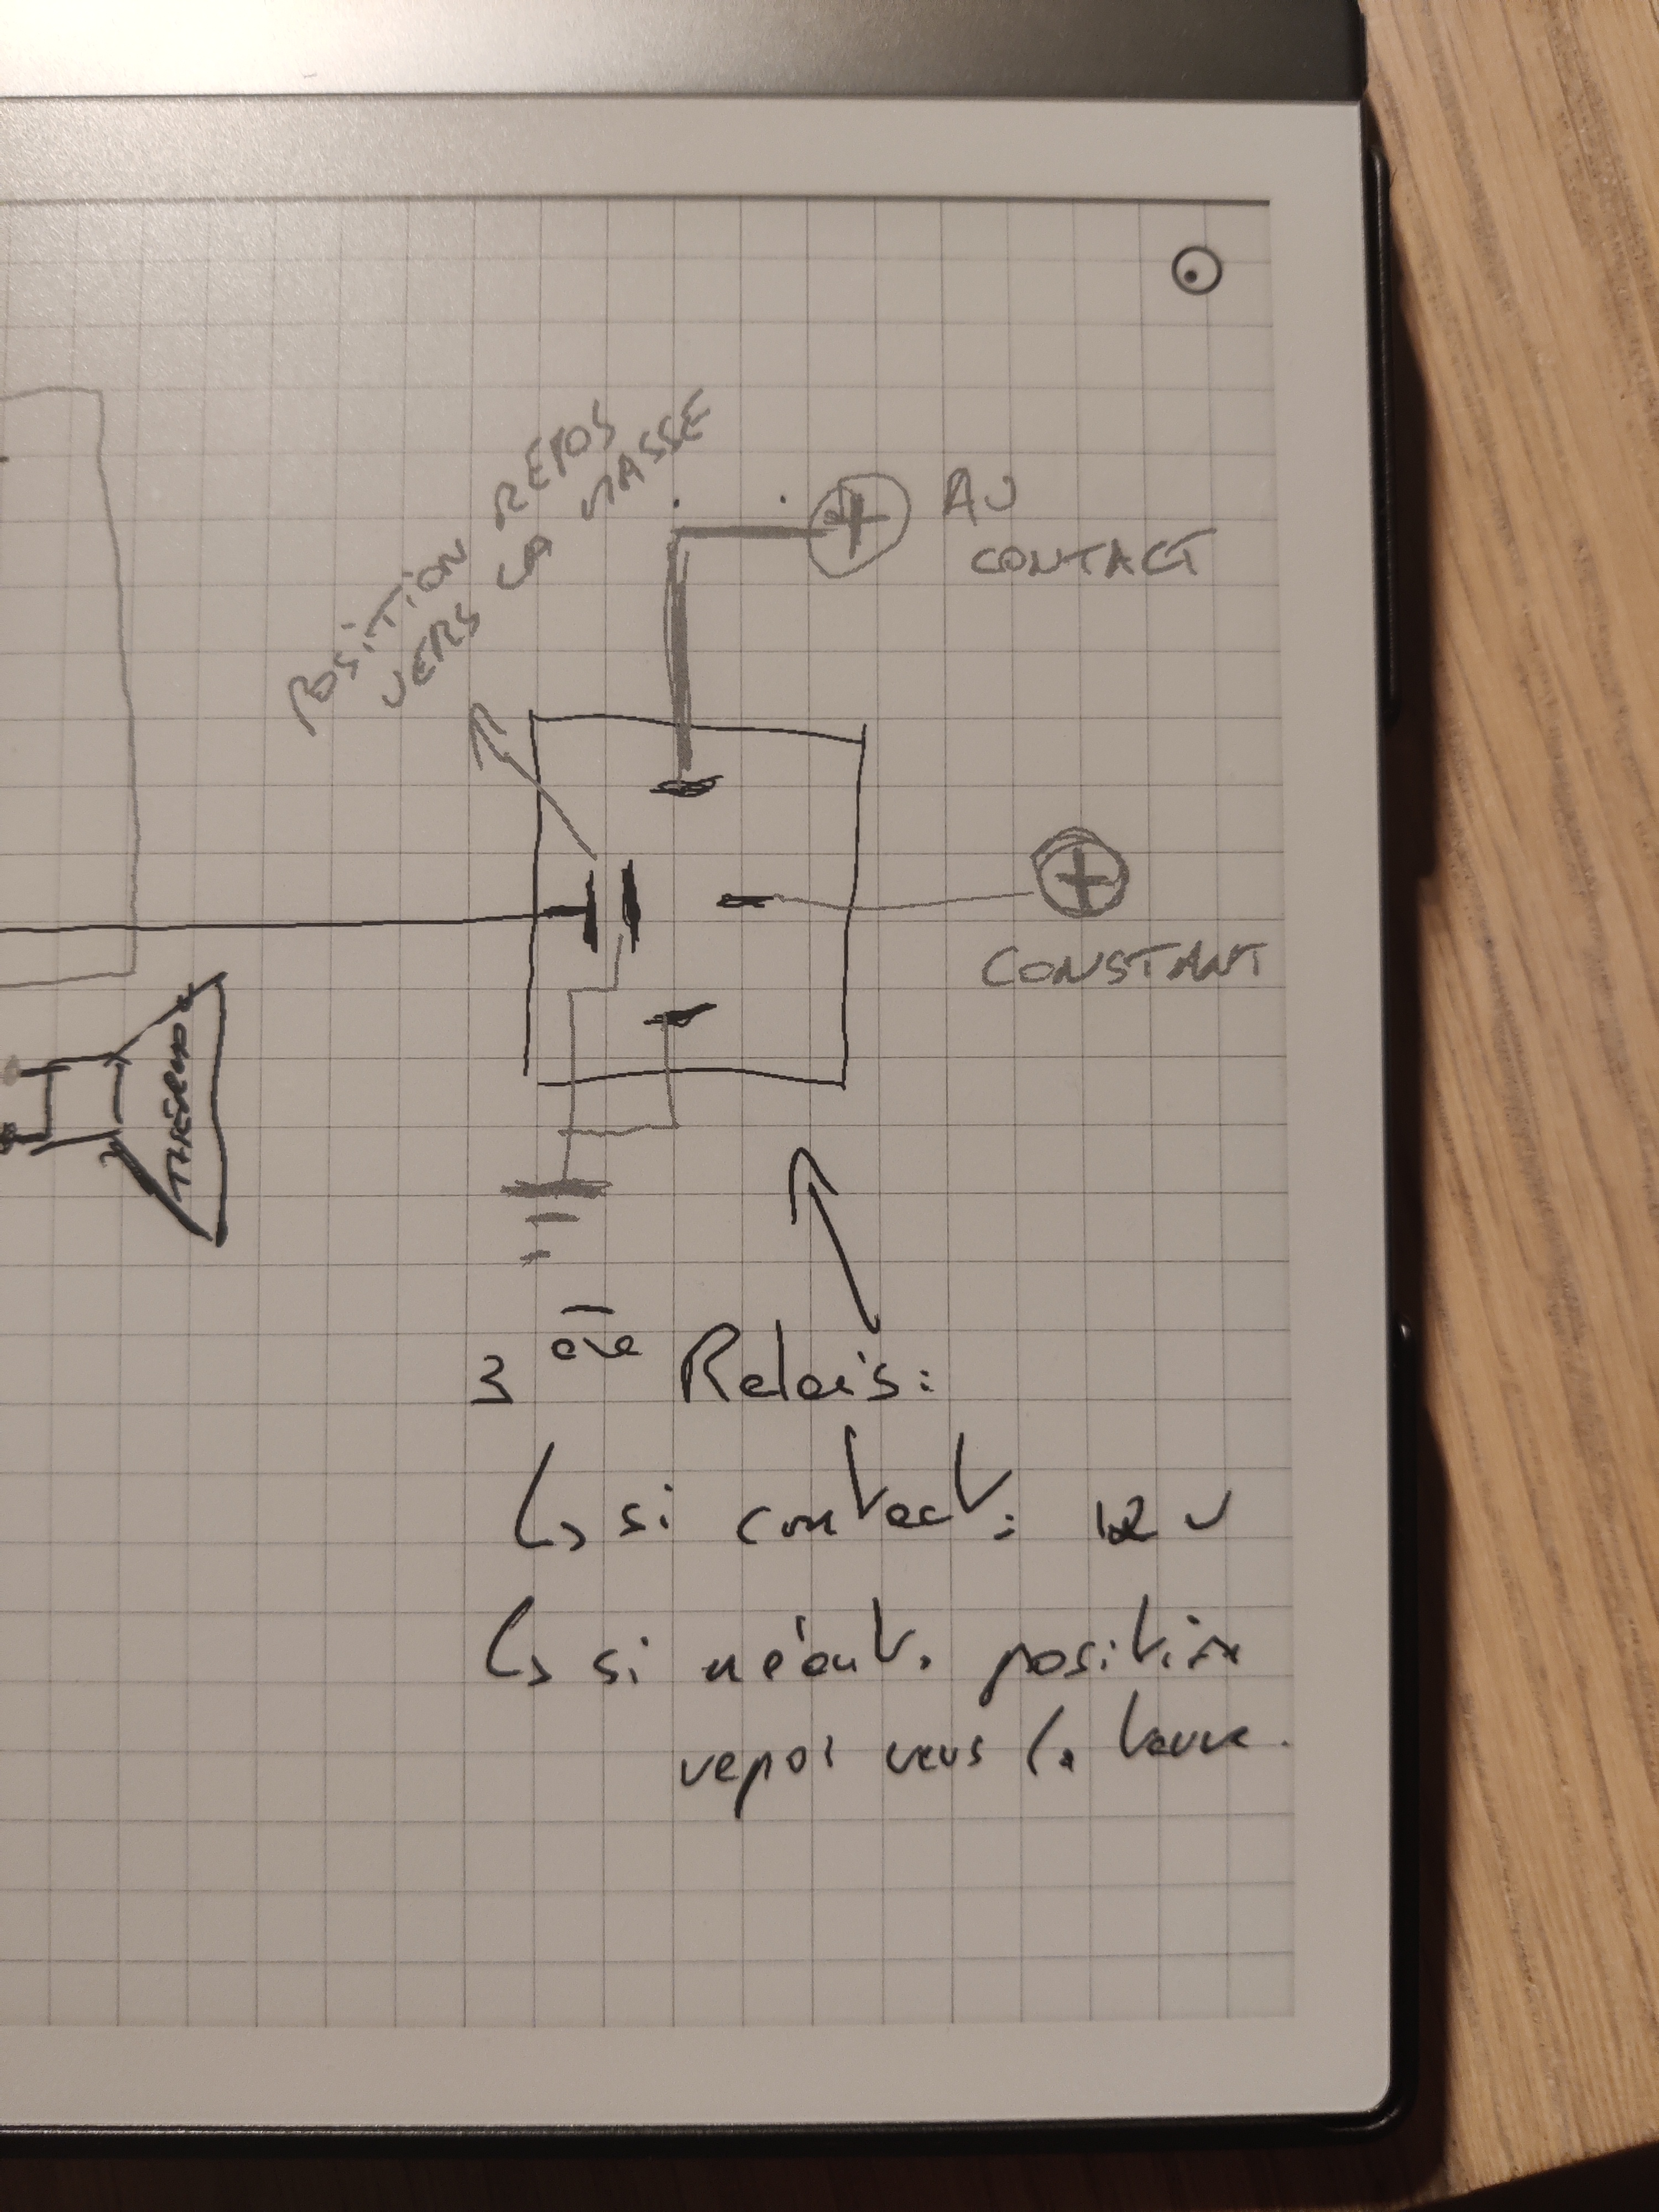 POSITION REPOS
VERS LA MASSE
+ AU
CONTACT
+
CONSTANT
THERMO
3ème Relais:
↳ si contact: 12 V
↳ si néant: position
repos vers la terre.